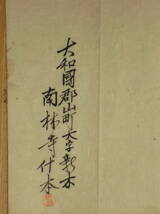 大和國郡山町大字新木
南林寺什本